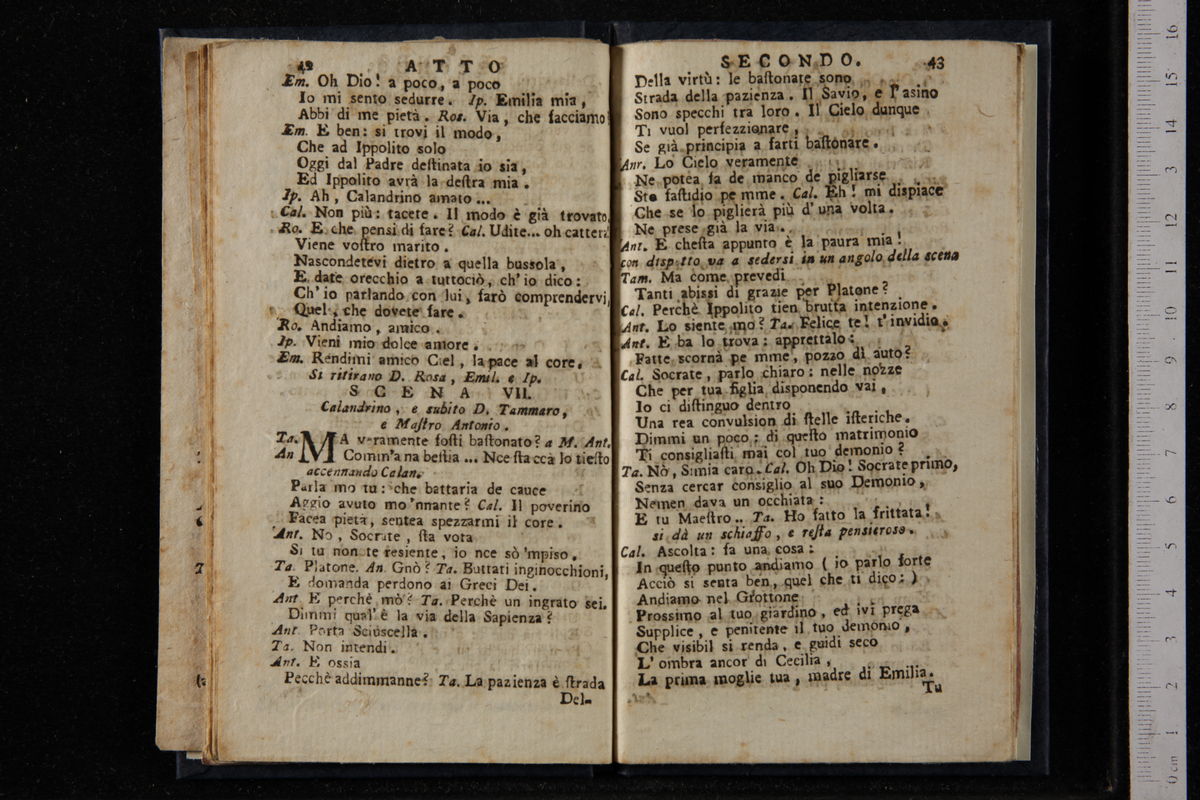 42 ATTO
Em. Oh Dio! a poco, a poco
Io mi sento sedurre. Ip. Emilia mia,
Abbi di me pietà. Ros. Via, che facciamo
Em. E ben: si trovi il modo,
Che ad Ippolito solo
Oggi dal Padre deſtinata io sia,
Ed Ippolito avrà la deſtra mia.
Ip. Ah, Calandrino amato...
Cal. Non più: tacete. Il modo è già trovato.
Ro. E che pensi di fare? Cal. Udite... oh cattera
Viene voſtro marito.
Nascondetevi dietro a quella bussola,
E date orecchio a tuttociò, ch'io dico:
Ch'io parlando con lui, farò comprendervi,
Quel, che dovete fare.
Ro. Andiamo, amico.
Ip. Vieni mio dolce amore.
Em. Rendimi amico Ciel, la pace al core.
Si ritirano D. Rosa, Emil. e Ip.
SCENA VII.
Calandrino, e subito D. Tammaro,
e Maſtro Antonio.
Ta. MA veramente foſti baſtonato? a M. Ant.
An Comm'a na beſtia... Nce ſta ccà lo tieſto
accennando Calan.
Parla mo tu: che battaria de cauce
Aggio avuto mo 'nnante? Cal. Il poverino
Facea pietà, sentea spezzarmi il core.
Ant. No, Socrate, ſta vota
Si tu non te resiente, io nce sò 'mpiso.
Ta. Platone. An. Gnò? Ta. Buttati inginocchioni,
E domanda perdono ai Greci Dei.
Ant. E perché mò? Ta. Perchè un ingrato sei.
Dimmi qual'è la via della Sapienza?
Ant. Porta Sciuscella.
Ta. Non intendi.
Ant. E ossia
Pecchè addimmanne? Ta. La pazienza è ſtrada
Del-
SECONDO. 43
Della virtù: le baſtonate sono
Strada della pazienza. Il Savio, e l'asino
Sono specchi tra loro. Il Cielo dunque
Ti vuol perfezzionare,
Se già principia a farti baſtonare.
Anr. Lo Cielo veramente
Ne potea fa de manco de pigliarse
Sto faſtidio pe mme. Cal. Eh! mi dispiace
Che se lo piglierà più d'una volta.
Ne prese già la via.
Ant. E cheſta appunto è la paura mia!
con dispetto va a sedersi in un angolo della scena
Tam. Ma come prevedi
Tanti abissi di grazie per Platone?
Cal. Perchè Ippolito tien brutta intenzione.
Ant. Lo siente mo? Ta. Felice te! t'invidio.
Ant. E ba lo trova: apprettalo:
Fatte scornà pe mme, pozzo dì auto?
Cal. Socrate, parlo chiaro: nelle nozze
Che per tua figlia disponendo vai,
Io ci diſtinguo dentro
Una rea convulsion di ſtelle iſteriche.
Dimmi un poco: di queſto matrimonio
Ti consigliaſti mai col tuo demonio?
Ta. Nò, Simia caro. Cal. Oh Dio! Socrate primo,
Senza cercar consiglio al suo Demonio,
Nemen dava un occhiata:
E tu Maeſtro.. Ta. Ho fatto la frittata!
si dà un schiaffo, e reſta pensieroso.
Cal. Ascolta: fa una cosa:
In queſto punto andiamo ( io parlo forte
Acciò si senta ben, quel che ti dico: )
Andiamo nel Grottone
Prossimo al tuo giardino, ed ivi prega
Supplice, e penitente il tuo demonio,
Che visibil si renda, e guidi seco
L'ombra ancor di Cecilia,
La prima moglie tua, madre di Emilia.
Tu